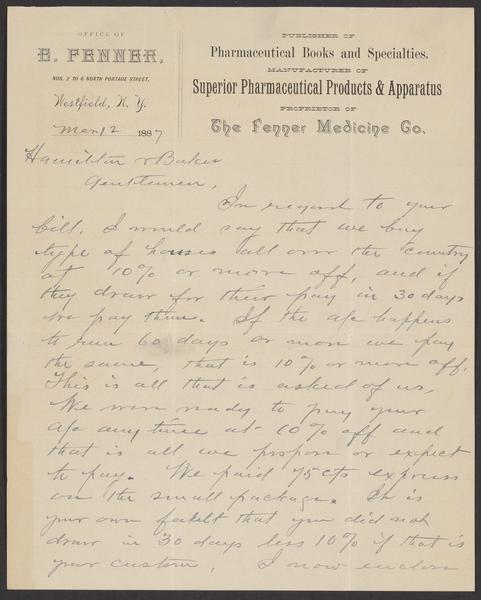 OFFICE OF
E. FENNER,
NOS. 2 TO 6 NORTH PORTAGE STREET,
Westfield, N. Y.
Mar 12 1887
PUBLISHER OF
Pharmaceutical Books and Specialties.
MANUFACTURER OF
Superior Pharmaceutical Products & Apparatus
PROPRIETOR OF
The Fenner Medicine Co.
Hamilton & Baker
Gentlemen,
In regard to your
bill, I would say that we buy
type of houses all over the country
at 10% or more off, and if
they draw for their pay in 30 days
we pay them. If the a/c happens
to run 60 days or more we pay
the same, that is 10% or more off.
This is all that is asked of us,
We were ready to pay your
a/c any time at 10% off and
that is all we propose or expect
to pay. We paid 75cts express
on the small package. It is
your own fault that you did not
draw in 30 days less 10% if that is
your custom. I now enclose